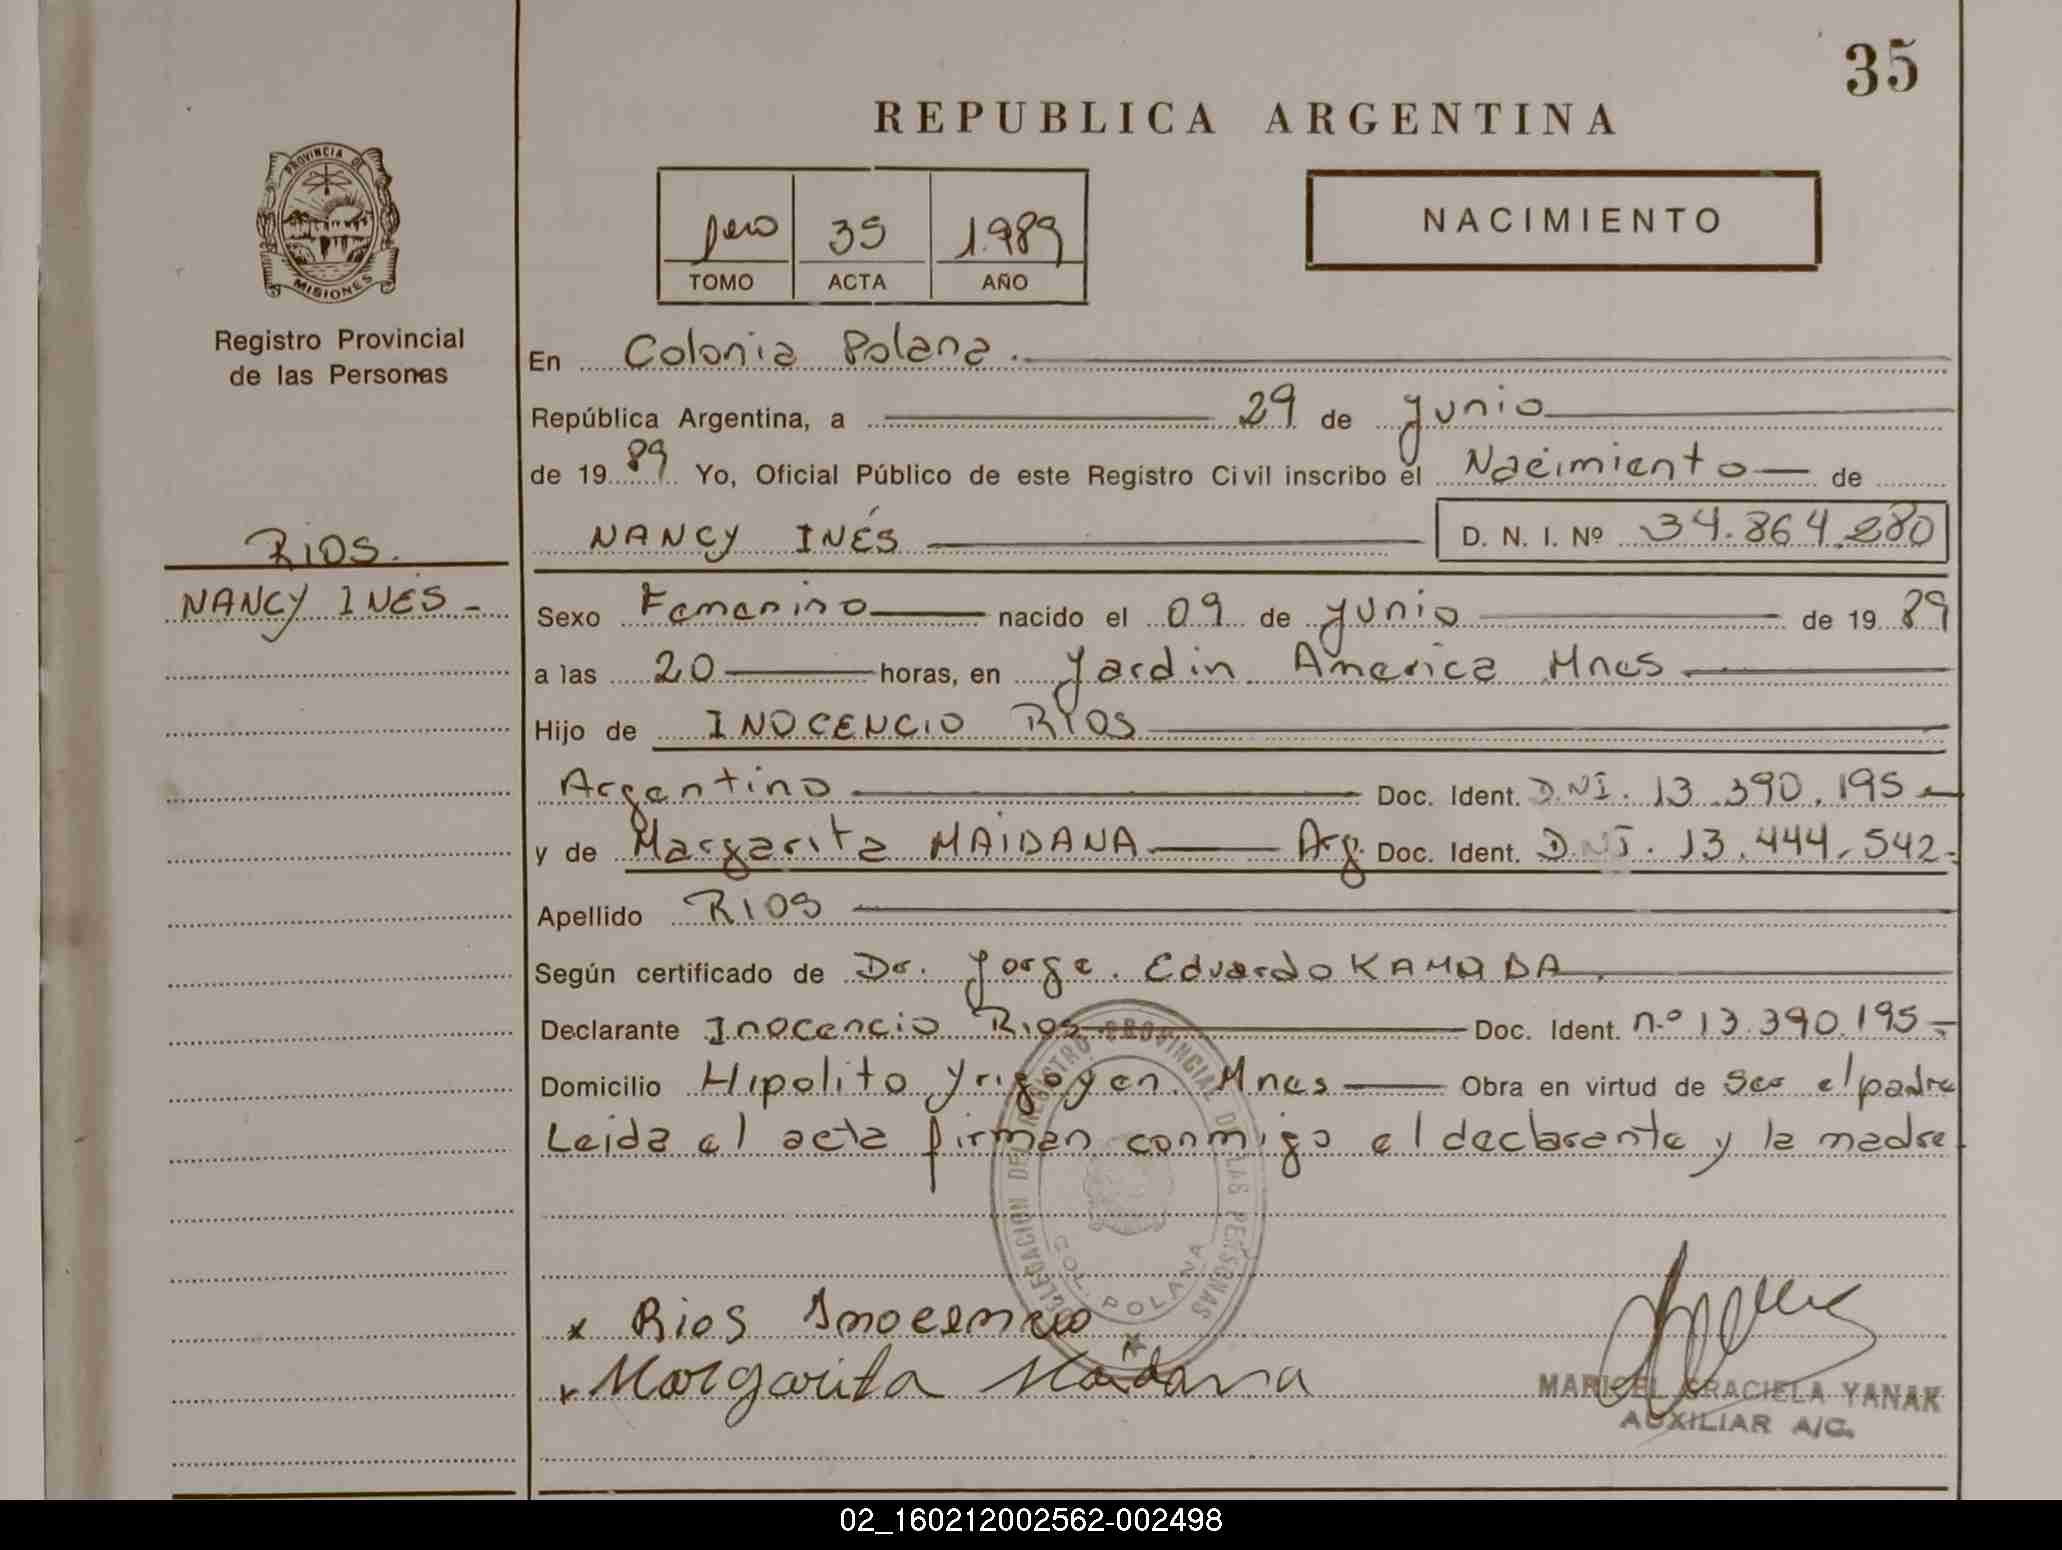 35
REPUBLICA ARGENTINA
PROVINCIA DE
MISIONES
Registro Provincial
de las Personas
1ero 35 1.989
TOMO ACTA AÑO
NACIMIENTO
En Colonia Polana.
República Argentina, a 29 de Junio
de 19 89 Yo, Oficial Público de este Registro Civil inscribo el Nacimiento de
RIOS.
NANCY INÉS D. N. I. Nº 34.864.280
NANCY INÉS -
Sexo Femenino nacido el 09 de Junio de 19 89
a las 20 horas, en Jardin America Mnes
Hijo de INOCENCIO RIOS
Argentino Doc. Ident. D.NI. 13.390.195
y de Margarita MAIDANA Arg. Doc. Ident. D.NI. 13.444.542-
Apellido RIOS
Según certificado de Dr. Jorge Eduardo KAMADA.
Declarante Inocencio Rios Doc. Ident. n.º 13.390.195-
Domicilio Hipolito Yrigoyen Mnes Obra en virtud de Ser el padre
Leida el acta firman conmigo el declarante y la madre.
DELEGACION DEL REGISTRO PROVINCIAL DE LAS PERSONAS
COL. POLANA
x Rios Inocencio
x Margarita Maidana
MARICEL GRACIELA YANAK
AUXILIAR A/C.
02_160212002562-002498